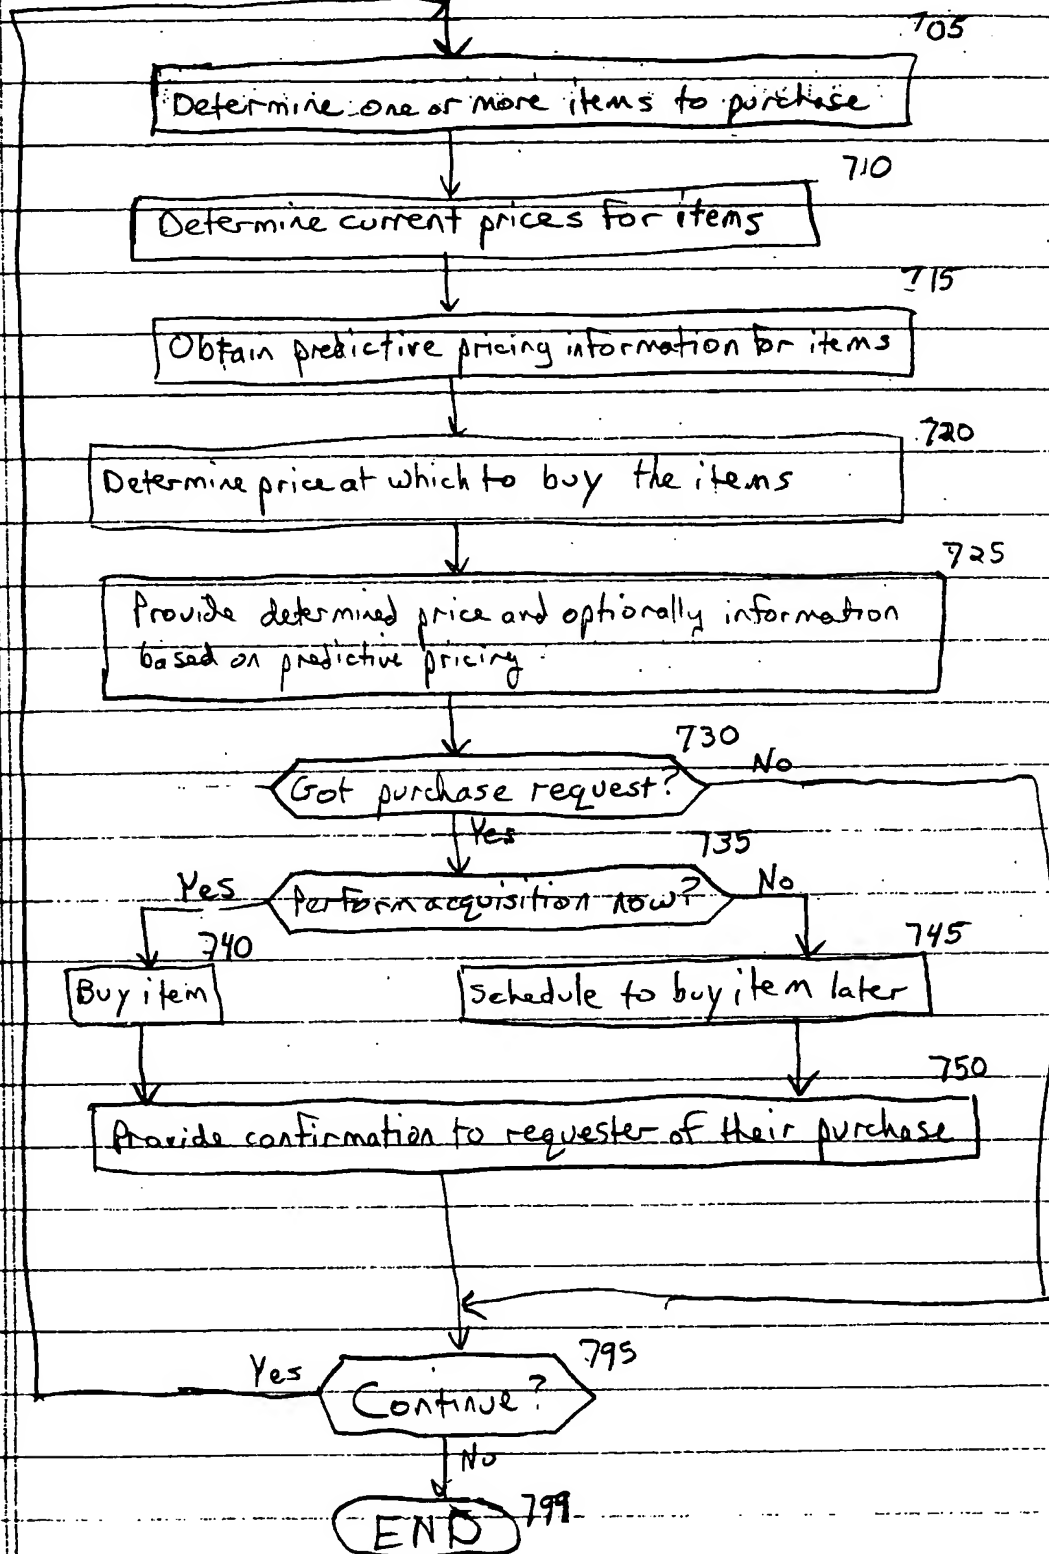 705
Determine one or more items to purchase
710
Determine current prices for items
715
Obtain predictive pricing information for items
720
Determine price at which to buy the items
725
Provide determined price and optionally information
based on predictive pricing
730
Got purchase request?
No
Yes
735
Perform acquisition now?
Yes
No
740
Buy item
745
Schedule to buy item later
750
Provide confirmation to requester of their purchase
795
Continue?
Yes
No
END
799